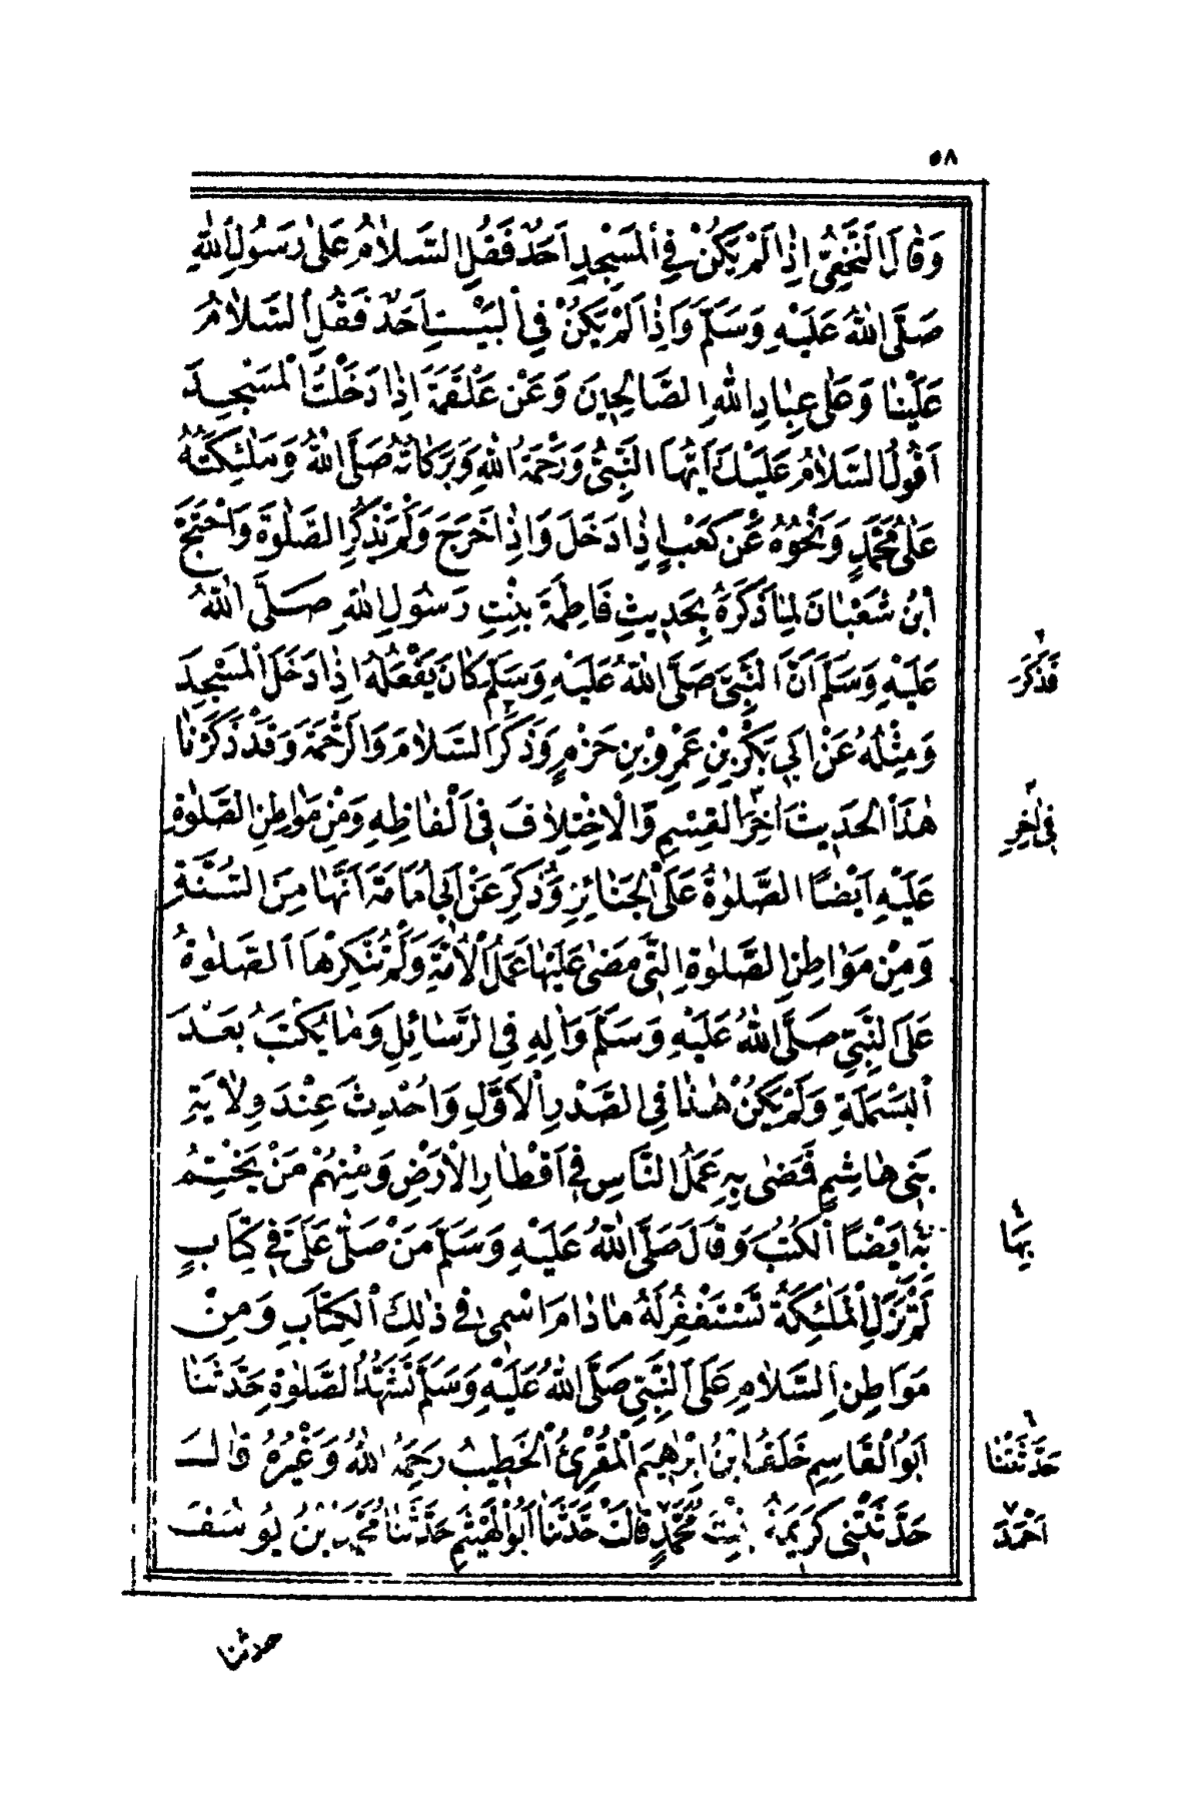 ٥٨
وَقَالَ النَّخَعِيُّ اِذَا لَمْ يَكُنْ فِي الْمَسْجِدِ اَحَدٌ فَقُلِ السَّلَامُ عَلَى رَسُولِ اللهِ
صَلَّى اللهُ عَلَيْهِ وَسَلَّمَ وَاِذَا لَمْ يَكُنْ فِي الْبَيْتِ اَحَدٌ فَقُلِ السَّلَامُ
عَلَيْنَا وَعَلَى عِبَادِ اللهِ الصَّالِحِينَ وَعَنْ عَلْقَمَةَ اِذَا دَخَلْتُ الْمَسْجِدَ
اَقُولُ السَّلَامُ عَلَيْكَ اَيُّهَا النَّبِيُّ وَرَحْمَةُ اللهِ وَبَرَكَاتُهُ صَلَّى اللهُ وَمَلٰئِكَتُهُ
عَلَى مُحَمَّدٍ وَنَحْوُهُ عَنْ كَعْبٍ اِذَا دَخَلَ وَاِذَا خَرَجَ وَلَمْ يَذْكُرِ الصَّلٰوةَ وَاحْتَجَّ
ابْنُ شَعْبَانَ لِمَا ذَكَرَهُ بِحَدِيثِ فَاطِمَةَ بِنْتِ رَسُولِ اللهِ صَلَّى اللهُ
عَلَيْهِ وَسَلَّمَ اَنَّ النَّبِيَّ صَلَّى اللهُ عَلَيْهِ وَسَلَّمَ كَانَ يَفْعَلُهُ اِذَا دَخَلَ الْمَسْجِدَ
فَذَكَرَ
وَمِثْلُهُ عَنْ اَبِي بَكْرِ بْنِ عَمْرِو بْنِ حَزْمٍ وَذَكَرَ السَّلَامَ وَالرَّحْمَةَ وَقَدْ ذَكَرْنَا
هٰذَا الْحَدِيثَ اٰخِرَ الْقِسْمِ وَالْاِخْتِلَافَ فِي اَلْفَاظِهِ وَمِنْ مَوَاطِنِ الصَّلٰوةِ
فِي اٰخِرِ
عَلَيْهِ اَيْضًا الصَّلٰوةُ عَلَى الْجَنَائِزِ وَذُكِرَ عَنْ اَبِي اُمَامَةَ اَنَّهَا مِنَ السُّنَّةِ
وَمِنْ مَوَاطِنِ الصَّلٰوةِ الَّتِي مَضَى عَلَيْهَا عَمَلُ الْاُمَّةِ وَلَمْ تُنْكِرْهَا الصَّلٰوةُ
عَلَى النَّبِيِّ صَلَّى اللهُ عَلَيْهِ وَسَلَّمَ وَاٰلِهِ فِي الرَّسَائِلِ وَمَا يُكْتَبُ بَعْدَ
الْبَسْمَلَةِ وَلَمْ يَكُنْ هٰذَا فِي الصَّدْرِ الْاَوَّلِ وَاُحْدِثَ عِنْدَ وِلَايَةِ
بَنِي هَاشِمٍ فَمَضَى بِهِ عَمَلُ النَّاسِ فِي اَقْطَارِ الْاَرْضِ وَمِنْهُمْ مَنْ يَخْتِمُ
بِهِ اَيْضًا الْكُتُبَ وَقَالَ صَلَّى اللهُ عَلَيْهِ وَسَلَّمَ مَنْ صَلَّى عَلَيَّ فِي كِتَابٍ
بِهَا
لَمْ تَزَلِ الْمَلٰئِكَةُ تَسْتَغْفِرُ لَهُ مَا دَامَ اسْمِي فِي ذٰلِكَ الْكِتَابِ وَمِنْ
مَوَاطِنِ السَّلَامِ عَلَى النَّبِيِّ صَلَّى اللهُ عَلَيْهِ وَسَلَّمَ تَشَهُّدُ الصَّلٰوةِ حَدَّثَنَا
اَبُو الْقَاسِمِ خَلَفُ ابْنُ اِبْرٰهِيمَ الْمُقْرِئُ الْخَطِيبُ رَحِمَهُ اللهُ وَغَيْرُهُ قَالَ
حَدَّثَتْنَا
حَدَّثَتْنِي كَرِيمَةُ بِنْتُ مُحَمَّدٍ قَالَتْ حَدَّثَنَا اَبُو الْهَيْثَمِ حَدَّثَنَا مُحَمَّدُ بْنُ يُوسُفَ
اَحْمَدَ
حدثنا